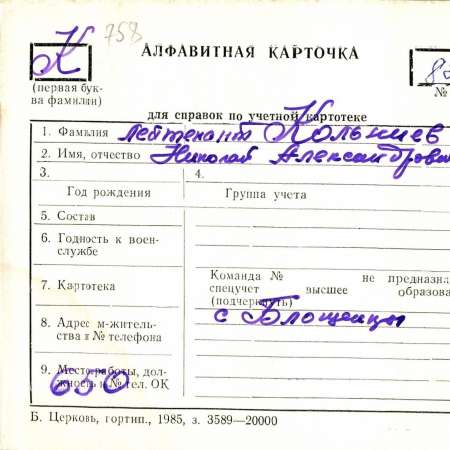 К
758
АЛФАВИТНАЯ КАРТОЧКА
(первая бук-
ва фамилии)
№
для справок по учетной картотеке
1. Фамилия Лейтенант
2. Имя, отчество Николай
3.
4.
Год рождения
Группа учета
5. Состав
6. Годность к воен-
службе
7. Картотека
Команда № не предназна
спецучет высшее образова
(подчеркнуть)
8. Адрес м-житель-
ства и № телефона
с Блощенцы
9. Место работы, дол-
жность и № тел. ОК
650
Б. Церковь, гортип., 1985, з. 3589—20000